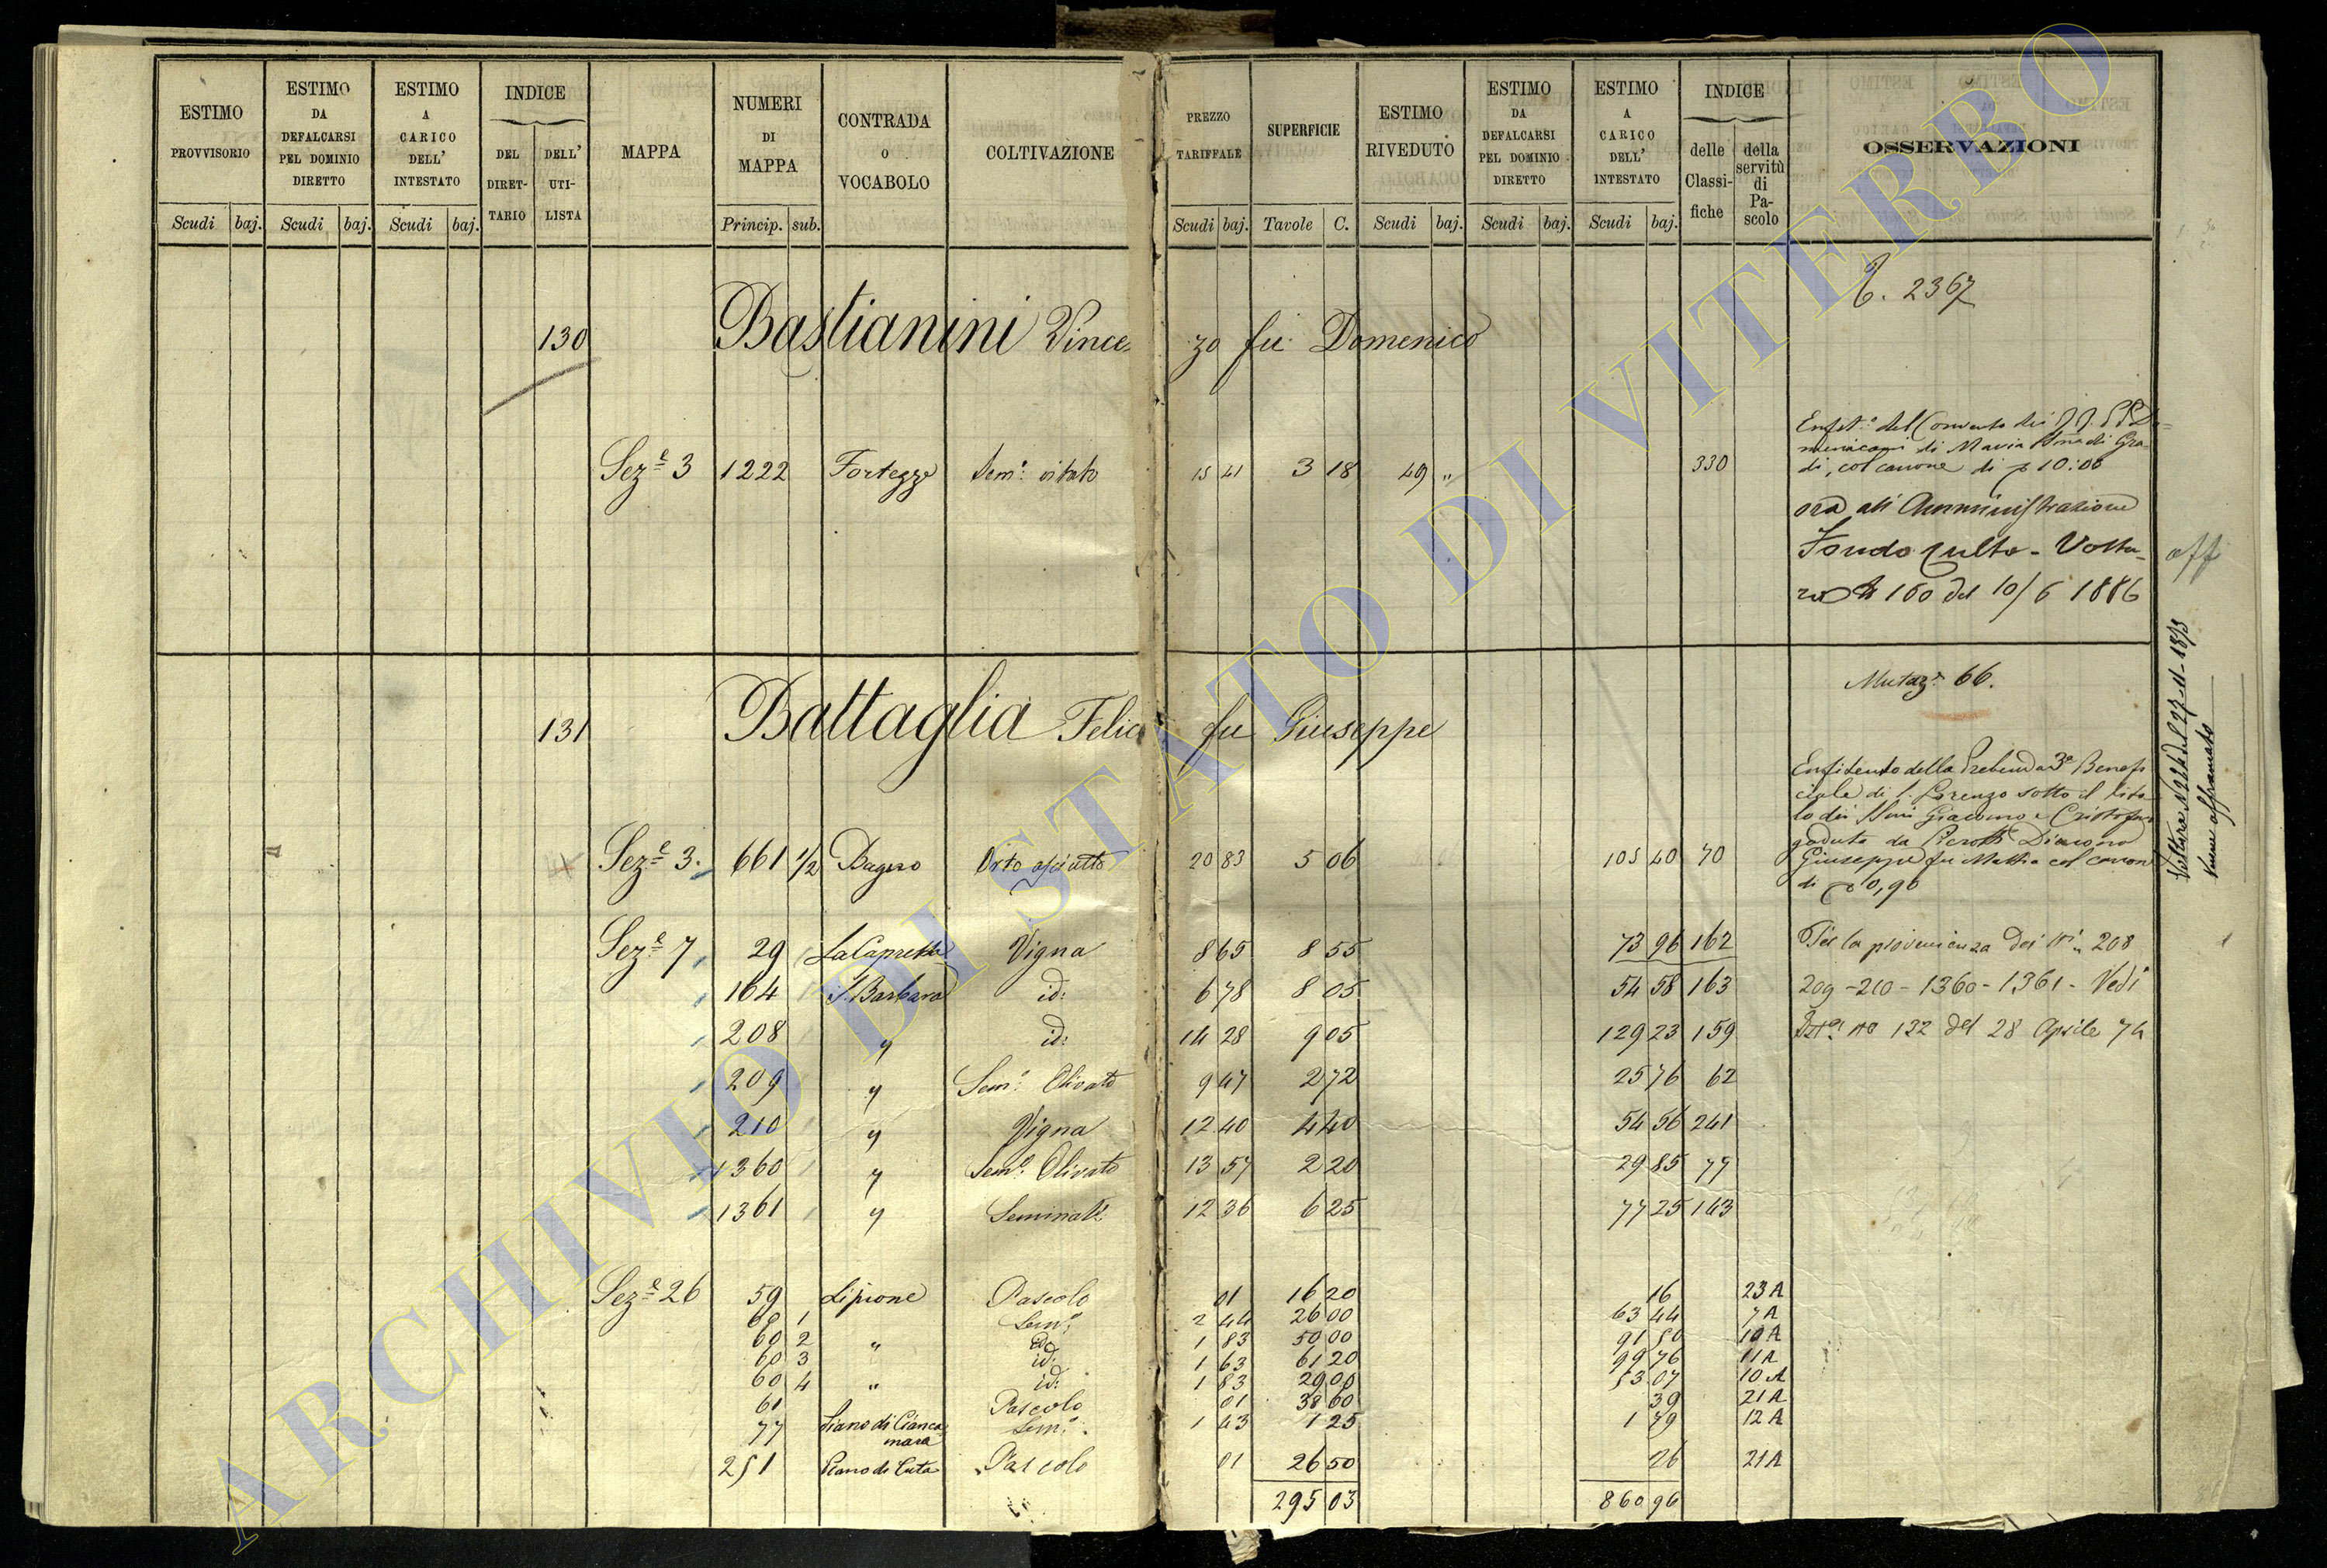 ESTIMO PROVVISORIO Scudi baj.
ESTIMO DA DEFALCARSI PEL DOMINIO DIRETTO Scudi baj.
ESTIMO A CARICO DELL' INTESTATO Scudi baj.
INDICE DEL DIRETTARIO DELL' UTILISTA
MAPPA
NUMERI DI MAPPA Princip. sub.
CONTRADA O VOCABOLO
COLTIVAZIONE
PREZZO TARIFFALE Scudi baj.
SUPERFICIE Tavole C.
ESTIMO RIVEDUTO Scudi baj.
ESTIMO DA DEFALCARSI PEL DOMINIO DIRETTO Scudi baj.
ESTIMO A CARICO DELL' INTESTATO Scudi baj.
INDICE delle Classifiche della servitù di Pascolo
OSSERVAZIONI
2367
130 Bastianini Vincenzo fu Domenico
Sez.e 3 1222 Fortezze Sem.o vitato 15 41 3 18 49 " 330
Enfit.o del Convento dei
di Maria di Gra-
di, col canone di 10:00
ora all' Amministrazione
Fondo Culto - Voltu-
ra N 160 del 10/6 1886
off
131 Battaglia Felice fu Giuseppe
Mutaz.e 66.
Enfiteuta della Prebenda 3a Benefi
ciale di S. Lorenzo sotto il tito-
lo dei Giacomo e Cristofaro
goduta da Pierotti
Giuseppe fu Mattia col canone
di 0,90
Voltura N 224 del 27-11-1873
viene affrancato
Sez.e 3. 661 1/2 Bagno Orto asciutto 20 83 5 06 105 40 70
Sez.e 7 29 La Capretta Vigna 8 65 8 55 73 96 162
164 S. Barbara id: 6 78 8 05 54 58 163
208 " id: 14 28 9 05 129 23 159
209 " Sem.o Olivato 9 47 2 72 25 76 62
210 " Vigna 12 40 4 40 54 56 241
1360 " Sem.o Olivato 13 57 2 20 29 85 77
1361 " Seminat.o 12 36 6 25 77 25 143
Per la provenienza dei Ni. 208
209-210-1360-1361- Vedi
Ist.a No 132 del 28 Aprile 74
Sez.e 26 59 Lipione Pascolo 01 16 20 16 23A
60 1 Sem.o 2 44 26 00 63 44 7A
60 2 " id. 1 83 50 00 91 50 10A
60 3 id. 1 63 61 20 99 76 11A
60 4 " id: 1 83 29 00 53 07 10A
61 Pascolo 01 38 60 39 21A
77 Piano di Cianca-
mara Sem.o 1 43 1 25 1 79 12A
251 Piano di Cuta Pascolo 01 26 50 26 21A
295 03 860 96
ARCHIVIO DI STATO DI VITERBO